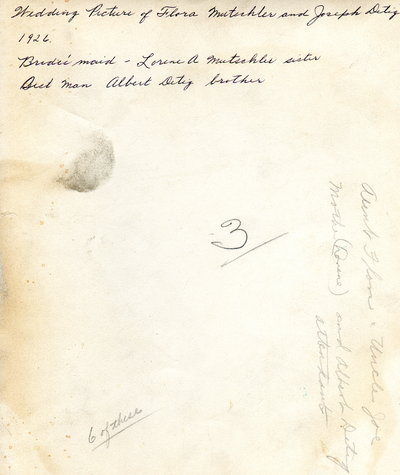 Wedding Picture of Flora Mutschler and Joseph Detig
1926.
Bride's maid - Lorene A Mutschler sister
Best Man Albert Detig brother
3/
Aunt Flora & Uncle Joe
Mother (Lorene) and Albert Detig
attendants
6 of these